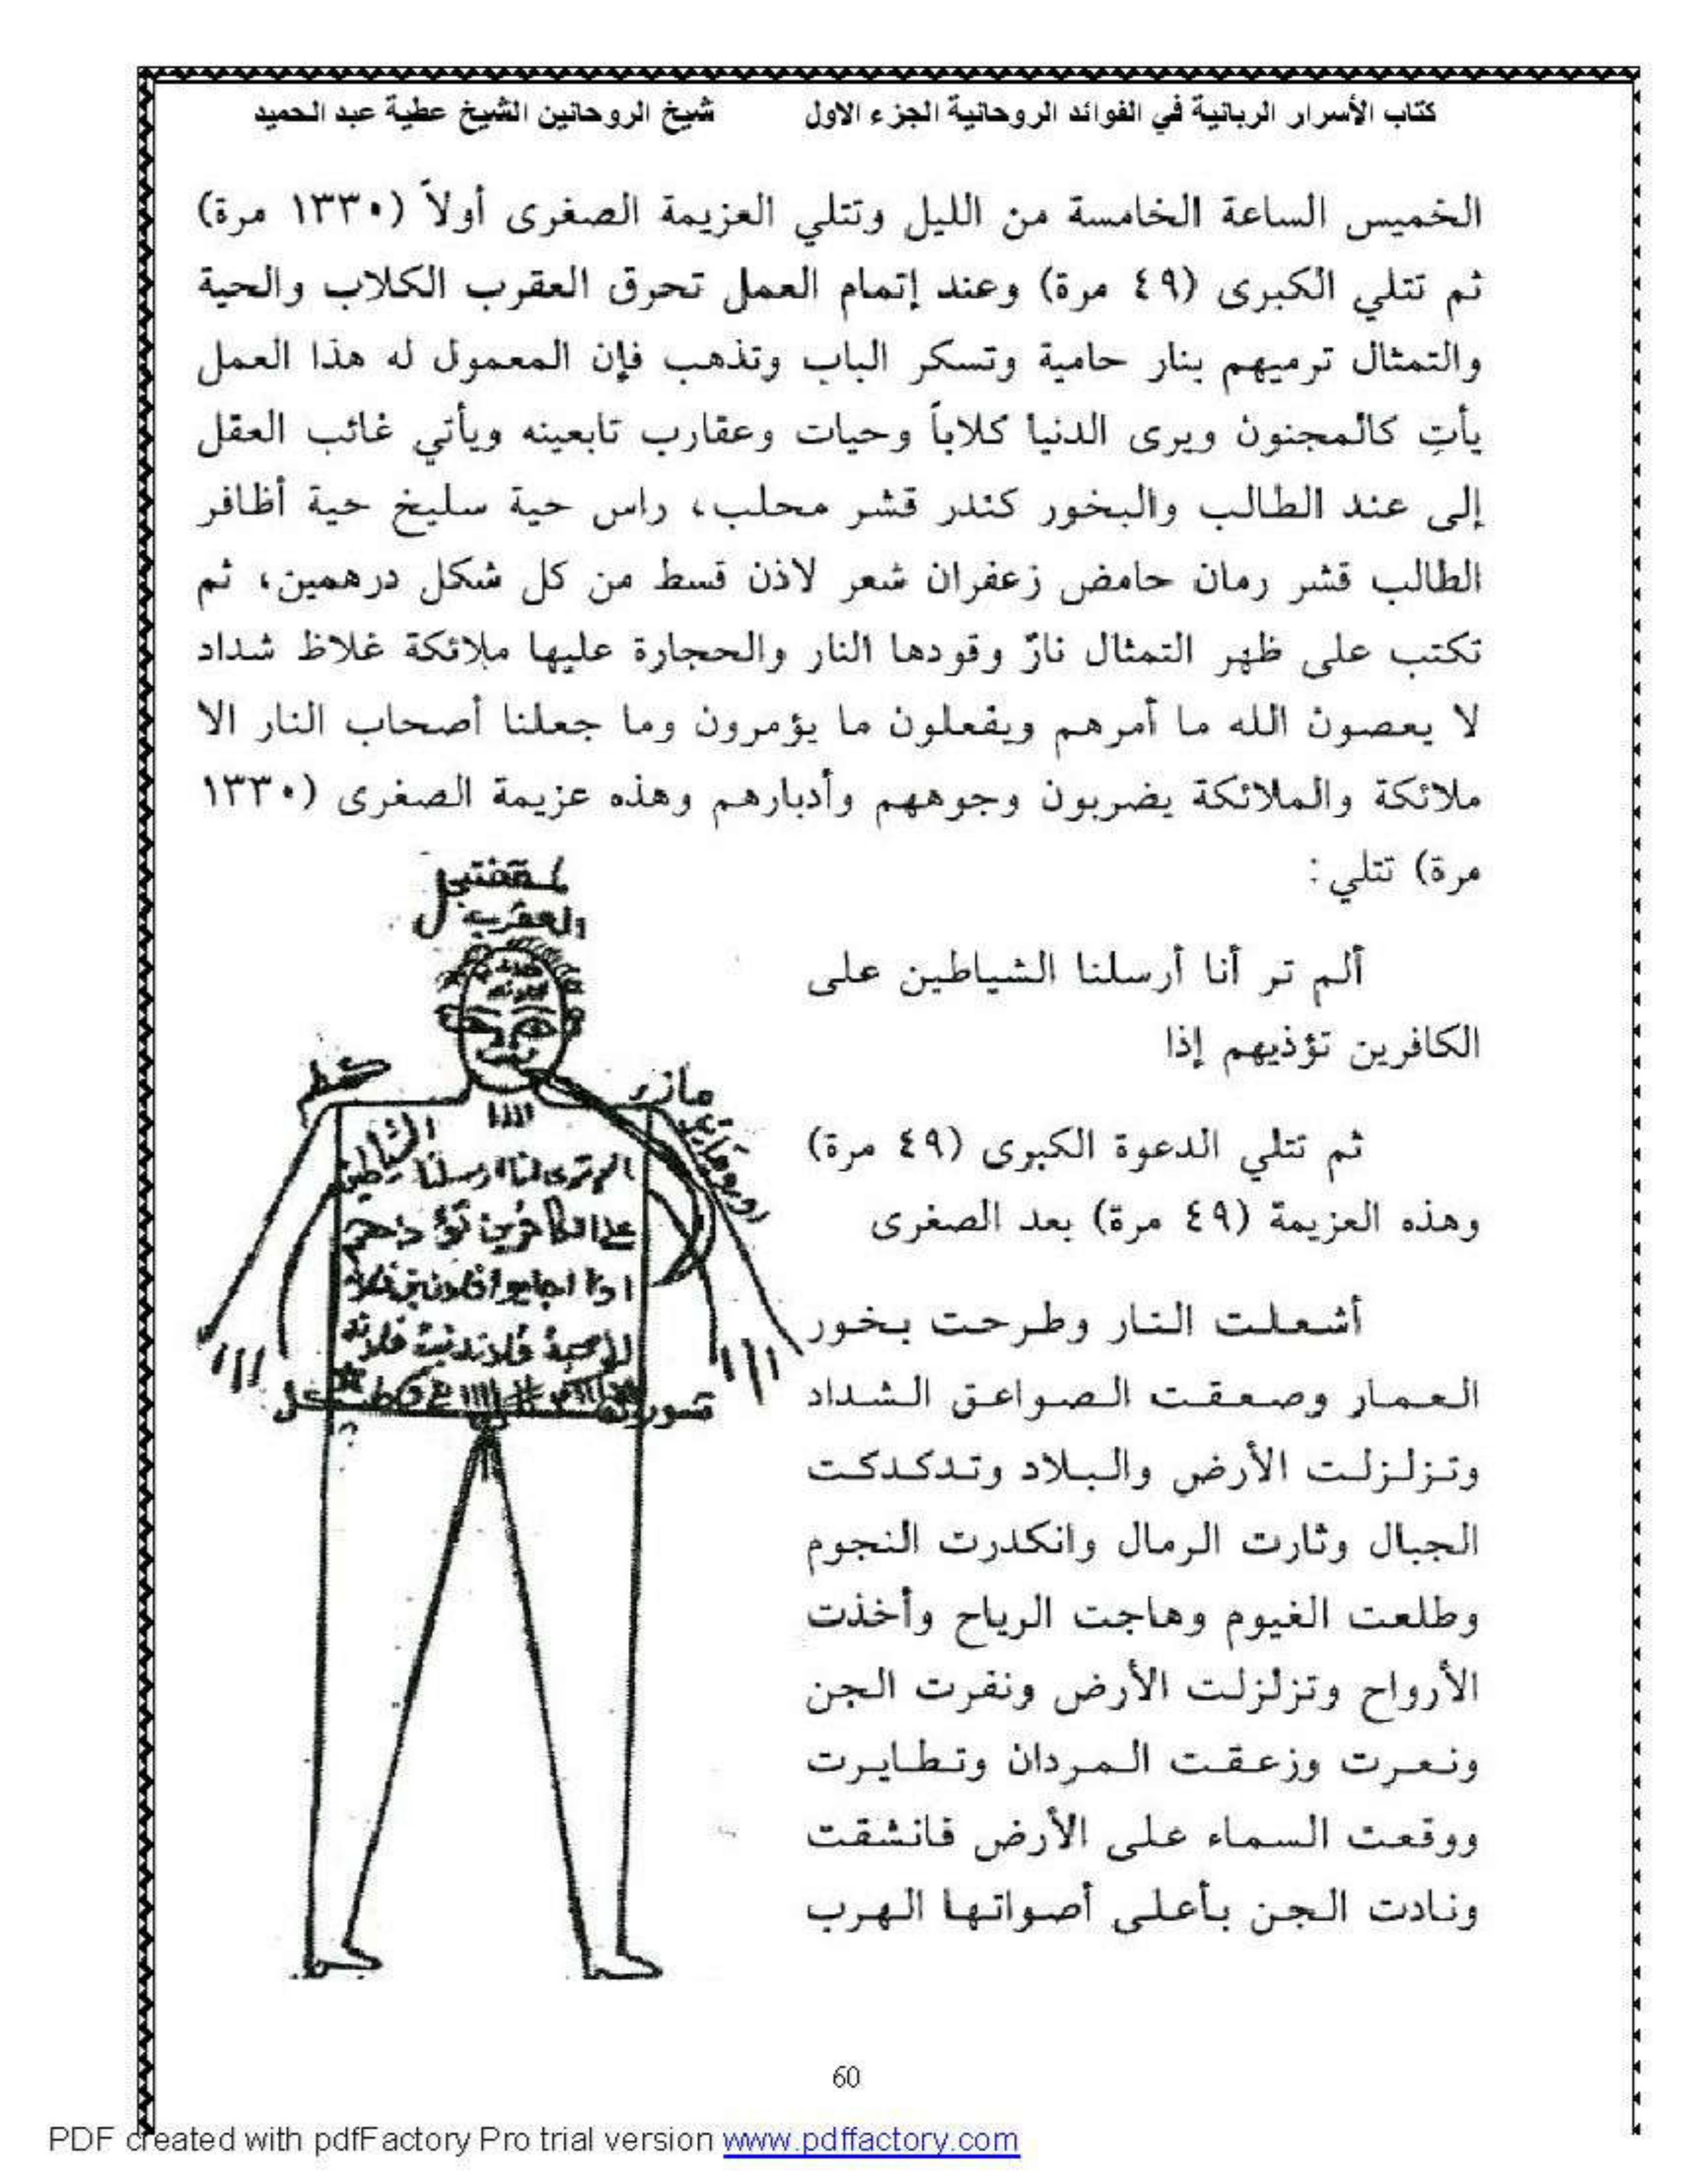 كتاب الأسرار الربانية في الفوائد الروحانية الجزء الاول شيخ الروحانين الشيخ عطية عبد الحميد
الخميس الساعة الخامسة من الليل وتتلي العزيمة الصغرى أولاً (١٣٣٠ مرة)
ثم تتلي الكبرى (٤٩ مرة) وعند إتمام العمل تحرق العقرب الكلاب والحية
والتمثال ترميهم بنار حامية وتسكر الباب وتذهب فإن المعمول له هذا العمل
يأتِ كالمجنون ويرى الدنيا كلاباً وحيات وعقارب تابعينه ويأتي غائب العقل
إلى عند الطالب والبخور كندر قشر محلب، راس حية سليخ حية أظافر
الطالب قشر رمان حامض زعفران شعر لاذن قسط من كل شكل درهمين، ثم
تكتب على ظهر التمثال نارٌ وقودها النار والحجارة عليها ملائكة غلاظ شداد
لا يعصون الله ما أمرهم ويفعلون ما يؤمرون وما جعلنا أصحاب النار الا
ملائكة والملائكة يضربون وجوههم وأدبارهم وهذه عزيمة الصغرى (١٣٣٠
مرة) تتلي:
ألم تر أنا أرسلنا الشياطين على
الكافرين تؤذيهم إذا
ثم تتلي الدعوة الكبرى (٤٩ مرة)
وهذه العزيمة (٤٩ مرة) بعد الصغرى
أشعلت النار وطرحت بخور
العمار وصعقت الصواعق الشداد
وتزلزلت الأرض والبلاد وتدكدكت
الجبال وثارت الرمال وانكدرت النجوم
وطلعت الغيوم وهاجت الرياح وأخذت
الأرواح وتزلزلت الأرض ونفرت الجن
ونعرت وزعقت المردان وتطايرت
ووقعت السماء على الأرض فانشقت
ونادت الجن بأعلى أصواتها الهرب
العقرب
مازر
الشياطين
الم تر انا ارسلنا
على الكافرين
60
PDF created with pdfFactory Pro trial version www.pdffactory.com